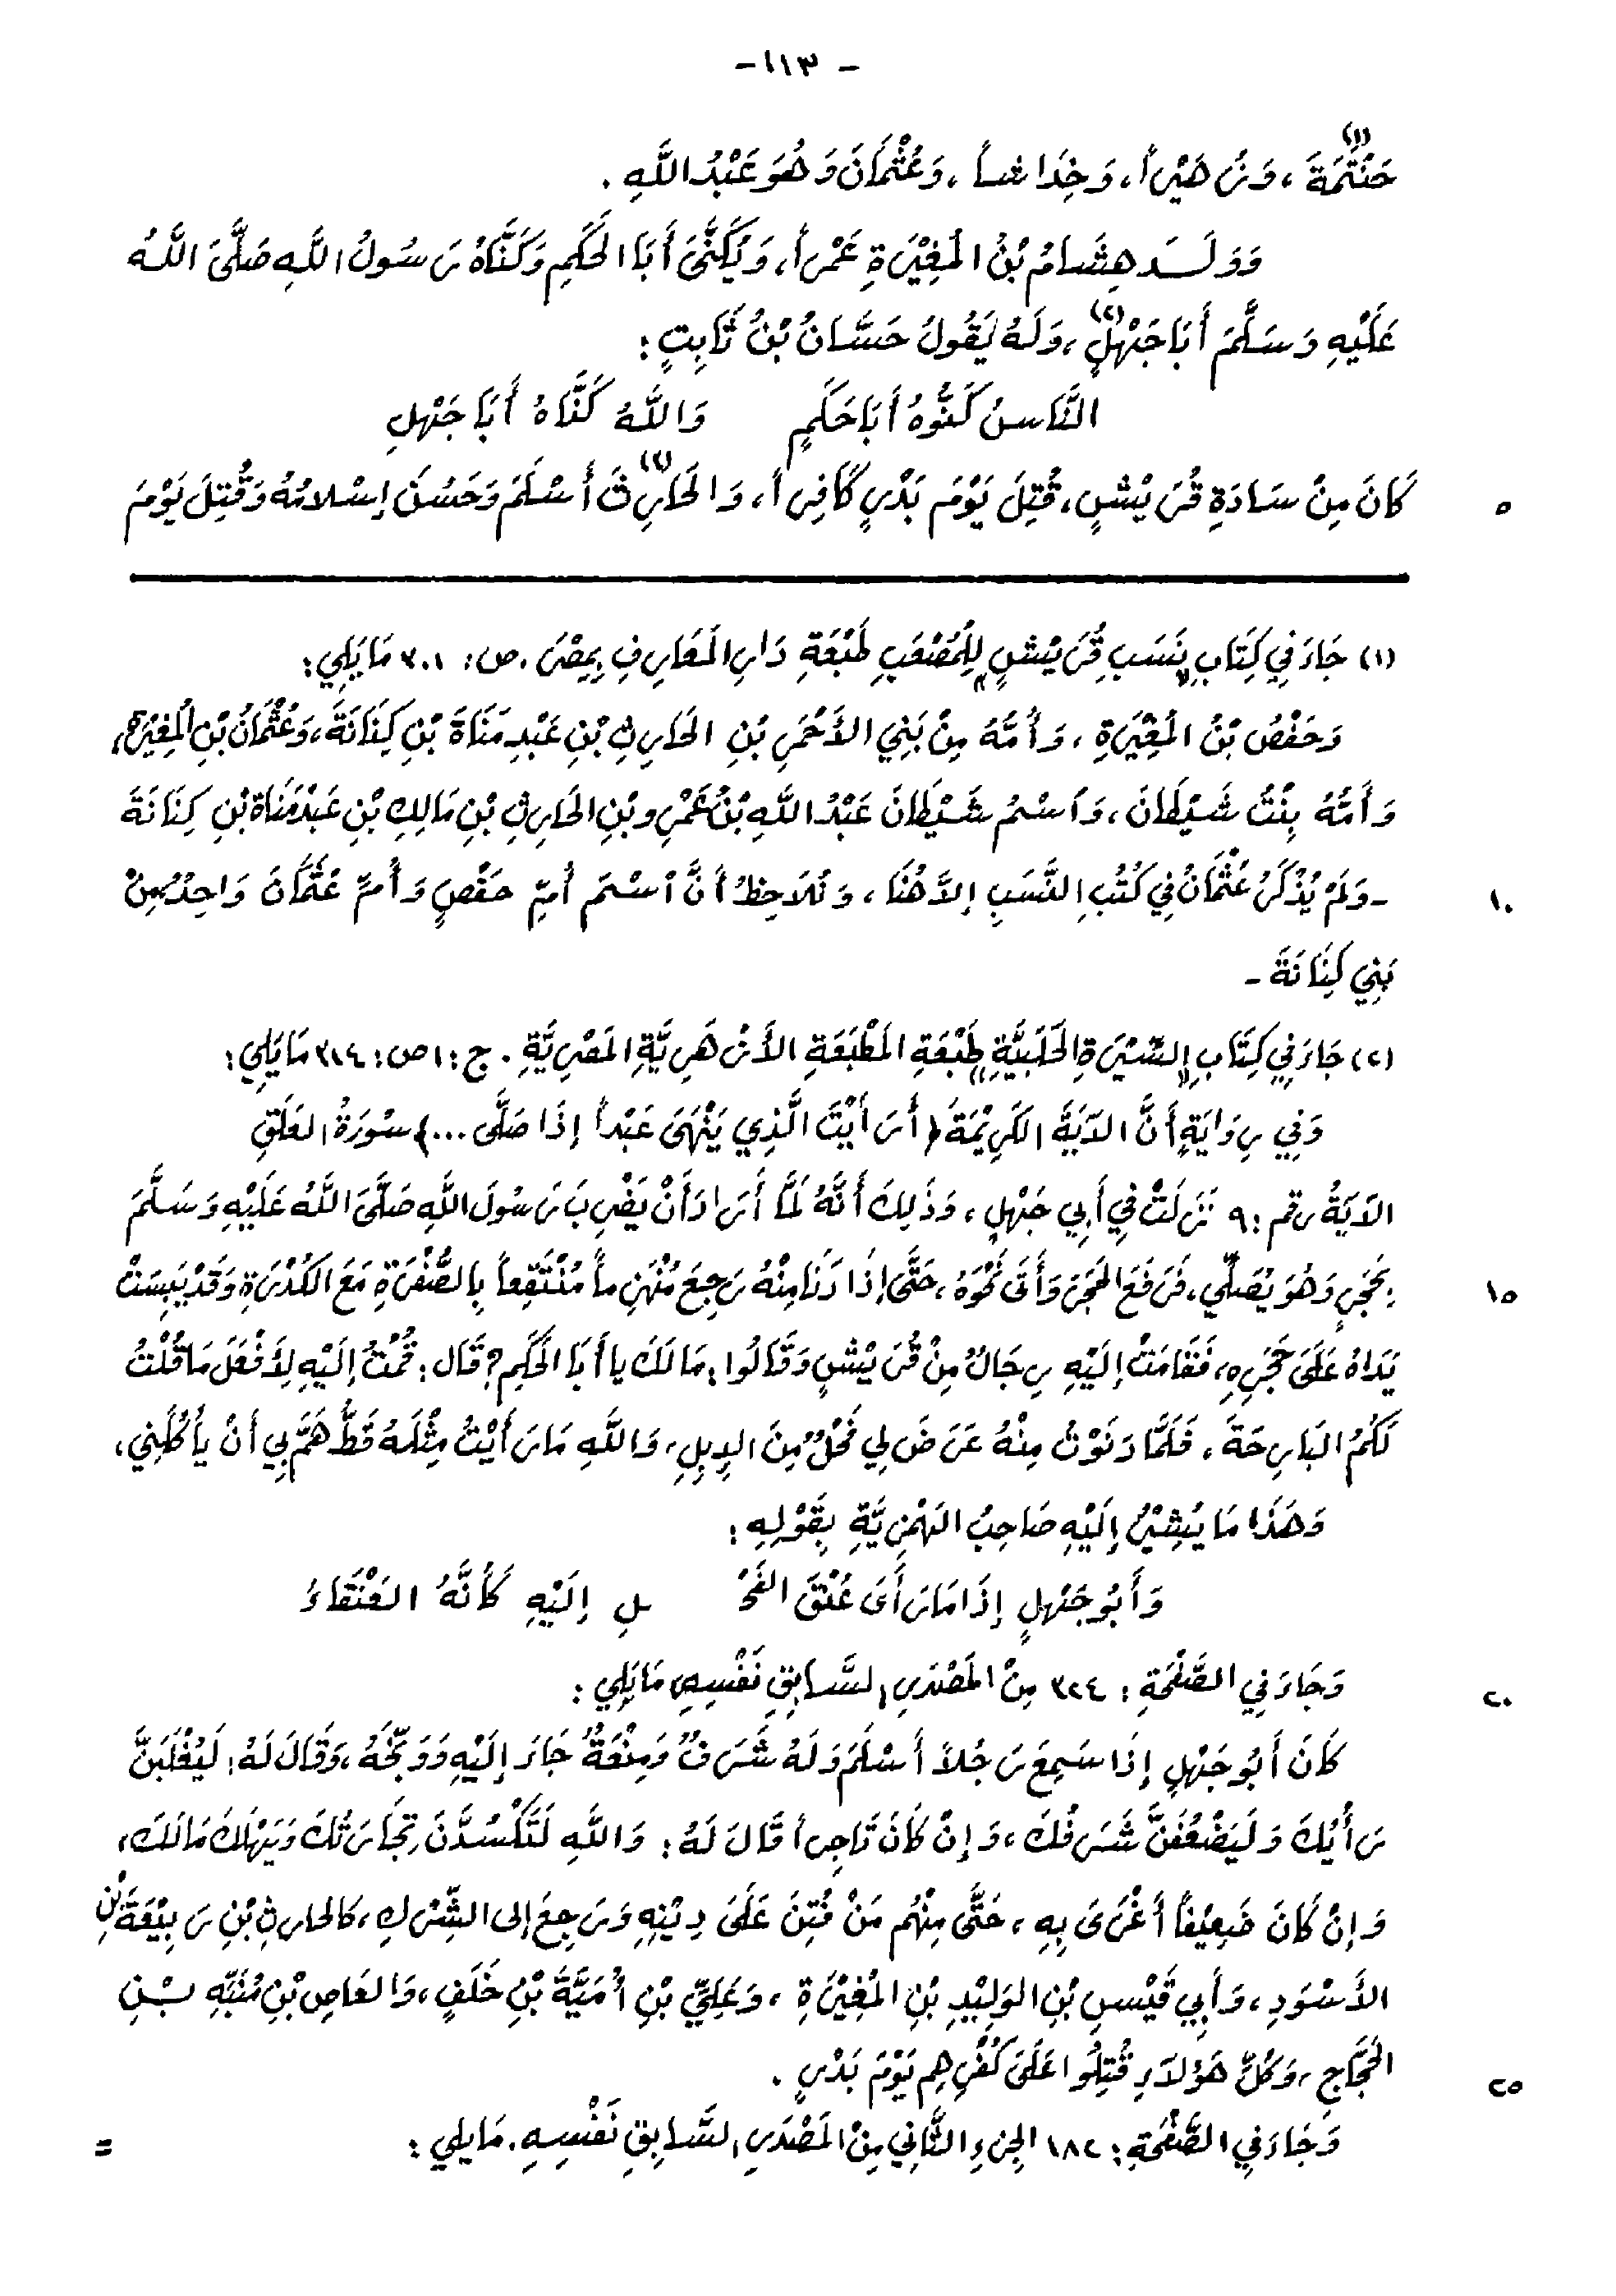 - ١١٣ -
(١)
حَنْتَمَةَ ، وَزُهَيْراً ، وَخِدَاشاً ، وَعُثْمَانَ وَهُوَ عَبْدُ اللَّهِ .
وَوَلَدَ هِشَامُ بْنُ المُغِيْرَةِ عَمْراً ، وَيُكَنَّى أَبَا الحَكَمِ وَكَنَّاهُ رَسُولُ اللَّهِ صَلَّى اللَّهُ
عَلَيْهِ وَسَلَّمَ أَبَا جَهْلٍ (٢) ، وَلَهُ يَقُولُ حَسَّانُ بْنُ ثَابِتٍ :
النَّاسُ كَنَّوْهُ أَبَا حَكَمٍ     وَاللَّهُ كَنَّاهُ أَبَا جَهْلِ
كَانَ مِنْ سَادَةِ قُرَيْشٍ ، قُتِلَ يَوْمَ بَدْرٍ كَافِراً ، وَالحَارِثَ (٣) أَسْلَمَ وَحَسُنَ إِسْلامُهُ وَقُتِلَ يَوْمَ     ٥
(١) جَاءَ فِي كِتَابِ " نَسَبِ قُرَيْشٍ " لِلْمُصْعَبِ طَبْعَةِ دَارِ المَعَارِفِ بِمِصْرَ . ص: ٣٠١ مَا يَلِي :
وَحَفْصُ بْنُ المُغِيْرَةِ ، وَأُمُّهُ مِنْ بَنِي الأَحْمَرِ بْنِ الحَارِثِ بْنِ عَبْدِ مَنَاةَ بْنِ كِنَانَةَ ، وَعُثْمَانُ بْنِ المُغِيْرَةِ ،
وَأُمُّهُ بِنْتُ شَيْطَانَ ، وَاسْمُ شَيْطَانَ عَبْدُ اللَّهِ بْنُ عَمْرِو بْنِ الحَارِثِ بْنِ مَالِكِ بْنِ عَبْدِ مَنَاةَ بْنِ كِنَانَةَ
- وَلَمْ يُذْكَرْ عُثْمَانُ فِي كُتُبِ النَّسَبِ إِلاَّ هُنَا ، وَنُلاَحِظُ أَنَّ اسْمَ أُمِّ حَفْصٍ وَأُمِّ عُثْمَانَ وَاحِدٌ مِنْ     ١٠
بَنِي كِنَانَةَ -
(٢) جَاءَ فِي كِتَابِ " السِّيْرَةِ الحَلَبِيَّةِ " طَبْعَةِ المَطْبَعَةِ الأَزْهَرِيَّةِ المَصْرِيَّةِ . ج: ١ ص: ٣١٤ مَا يَلِي :
وَفِي رِوَايَةٍ أَنَّ الآيَةَ الكَرِيْمَةَ ﴿ أَرَأَيْتَ الَّذِي يَنْهَى عَبْداً إِذَا صَلَّى ... ﴾ سُوْرَةُ العَلَقِ
الآيَةُ رقم : ٩ نَزَلَتْ فِي أَبِي جَهْلٍ ، وَذَلِكَ أَنَّهُ لَمَّا أَرَادَ أَنْ يَضْرِبَ رَسُولَ اللَّهِ صَلَّى اللَّهُ عَلَيْهِ وَسَلَّمَ
بِحَجَرٍ وَهُوَ يُصَلِّي ، فَرَفَعَ الحَجَرَ وَأَتَى نَحْوَهُ ، حَتَّى إِذَا دَنَا مِنْهُ رَجِعَ مُنْهَزِماً مُنْتَقِعاً بِالصُّفْرَةِ مَعَ الكُدْرَةِ وَقَدْ يَبِسَتْ     ١٥
يَدَاهُ عَلَى حَجَرِهِ ، فَقَامَتْ إِلَيْهِ رِجَالٌ مِنْ قُرَيْشٍ وَقَالُوا : مَا لَكَ يا أَبَا الحَكَمِ ؟ قَالَ : قُمْتُ إِلَيْهِ لِأَفْعَلَ مَا قُلْتُ
لَكُمْ البَارِحَةَ ، فَلَمَّا دَنَوْتُ مِنْهُ عَرَضَ لِي فَحْلٌ مِنَ الإِبِلِ ، وَاللَّهِ مَا رَأَيْتُ مِثْلَهُ قَطُّ هَمَّ بِي أَنْ يَأْكُلَنِي ،
وَهَذَا مَا يُشِيْرُ إِلَيْهِ صَاحِبُ الهَمْزِيَّةِ بِقَوْلِهِ :
وَأَبُو جَهْلٍ إِذَا مَا رَأَى عُنْقَ الفَحْـ     ـلِ إِلَيْهِ كَأَنَّهُ العَنْقَاءُ
وَجَاءَ فِي الصَّفْحَةِ : ٣٢٤ مِنْ المَصْدَرِ السَّابِقِ نَفْسِهِ مَا يَلِي :     ٢٠
كَانَ أَبُو جَهْلٍ إِذَا سَمِعَ رَجُلاً أَسْلَمَ وَلَهُ شَرَفٌ وَمِنْعَةٌ جَاءَ إِلَيْهِ وَوَبَّخَهُ ، وَقَالَ لَهُ : لَيُغْلَبَنَّ
رَأْيُكَ وَلَيَضْعُفَنَّ شَرَفُكَ ، وَإِنْ كَانَ تَاجِراً قَالَ لَهُ : وَاللَّهِ لَتَكْسُدَنَّ تِجَارَتُكَ وَيَهْلَكُ مَالَكَ ،
وَإِنْ كَانَ ضَعِيْفاً أَغْرَى بِهِ ، حَتَّى مِنْهُم مَنْ فُتِنَ عَلَى دِيْنِهِ وَرَجِعَ إِلى الشِّرْكِ ، كَالحَارِثِ بْنِ رَبِيْعَةَ بْنِ
الأَسْوَدِ ، وَأَبِي قَيْسِ بْنِ الوَلِيْدِ بْنِ المُغِيْرَةِ ، وَعَلِيِّ بْنِ أُمَيَّةَ بْنِ خَلَفٍ ، وَالعَاصِ بْنِ مُنَبِّهِ بْنِ
الحَجَّاجِ ، وَكُلُّ هَؤلاَءِ قُتِلُوا عَلَى كُفْرِهِم يَوْمَ بَدْرٍ .     ٢٥
وَجَاءَ فِي الصَّفْحَةِ : ١٨٢ الجِزءِ الثَّانِي مِنْ المَصْدَرِ السَّابِقِ نَفْسِهِ . مَا يلي :     =